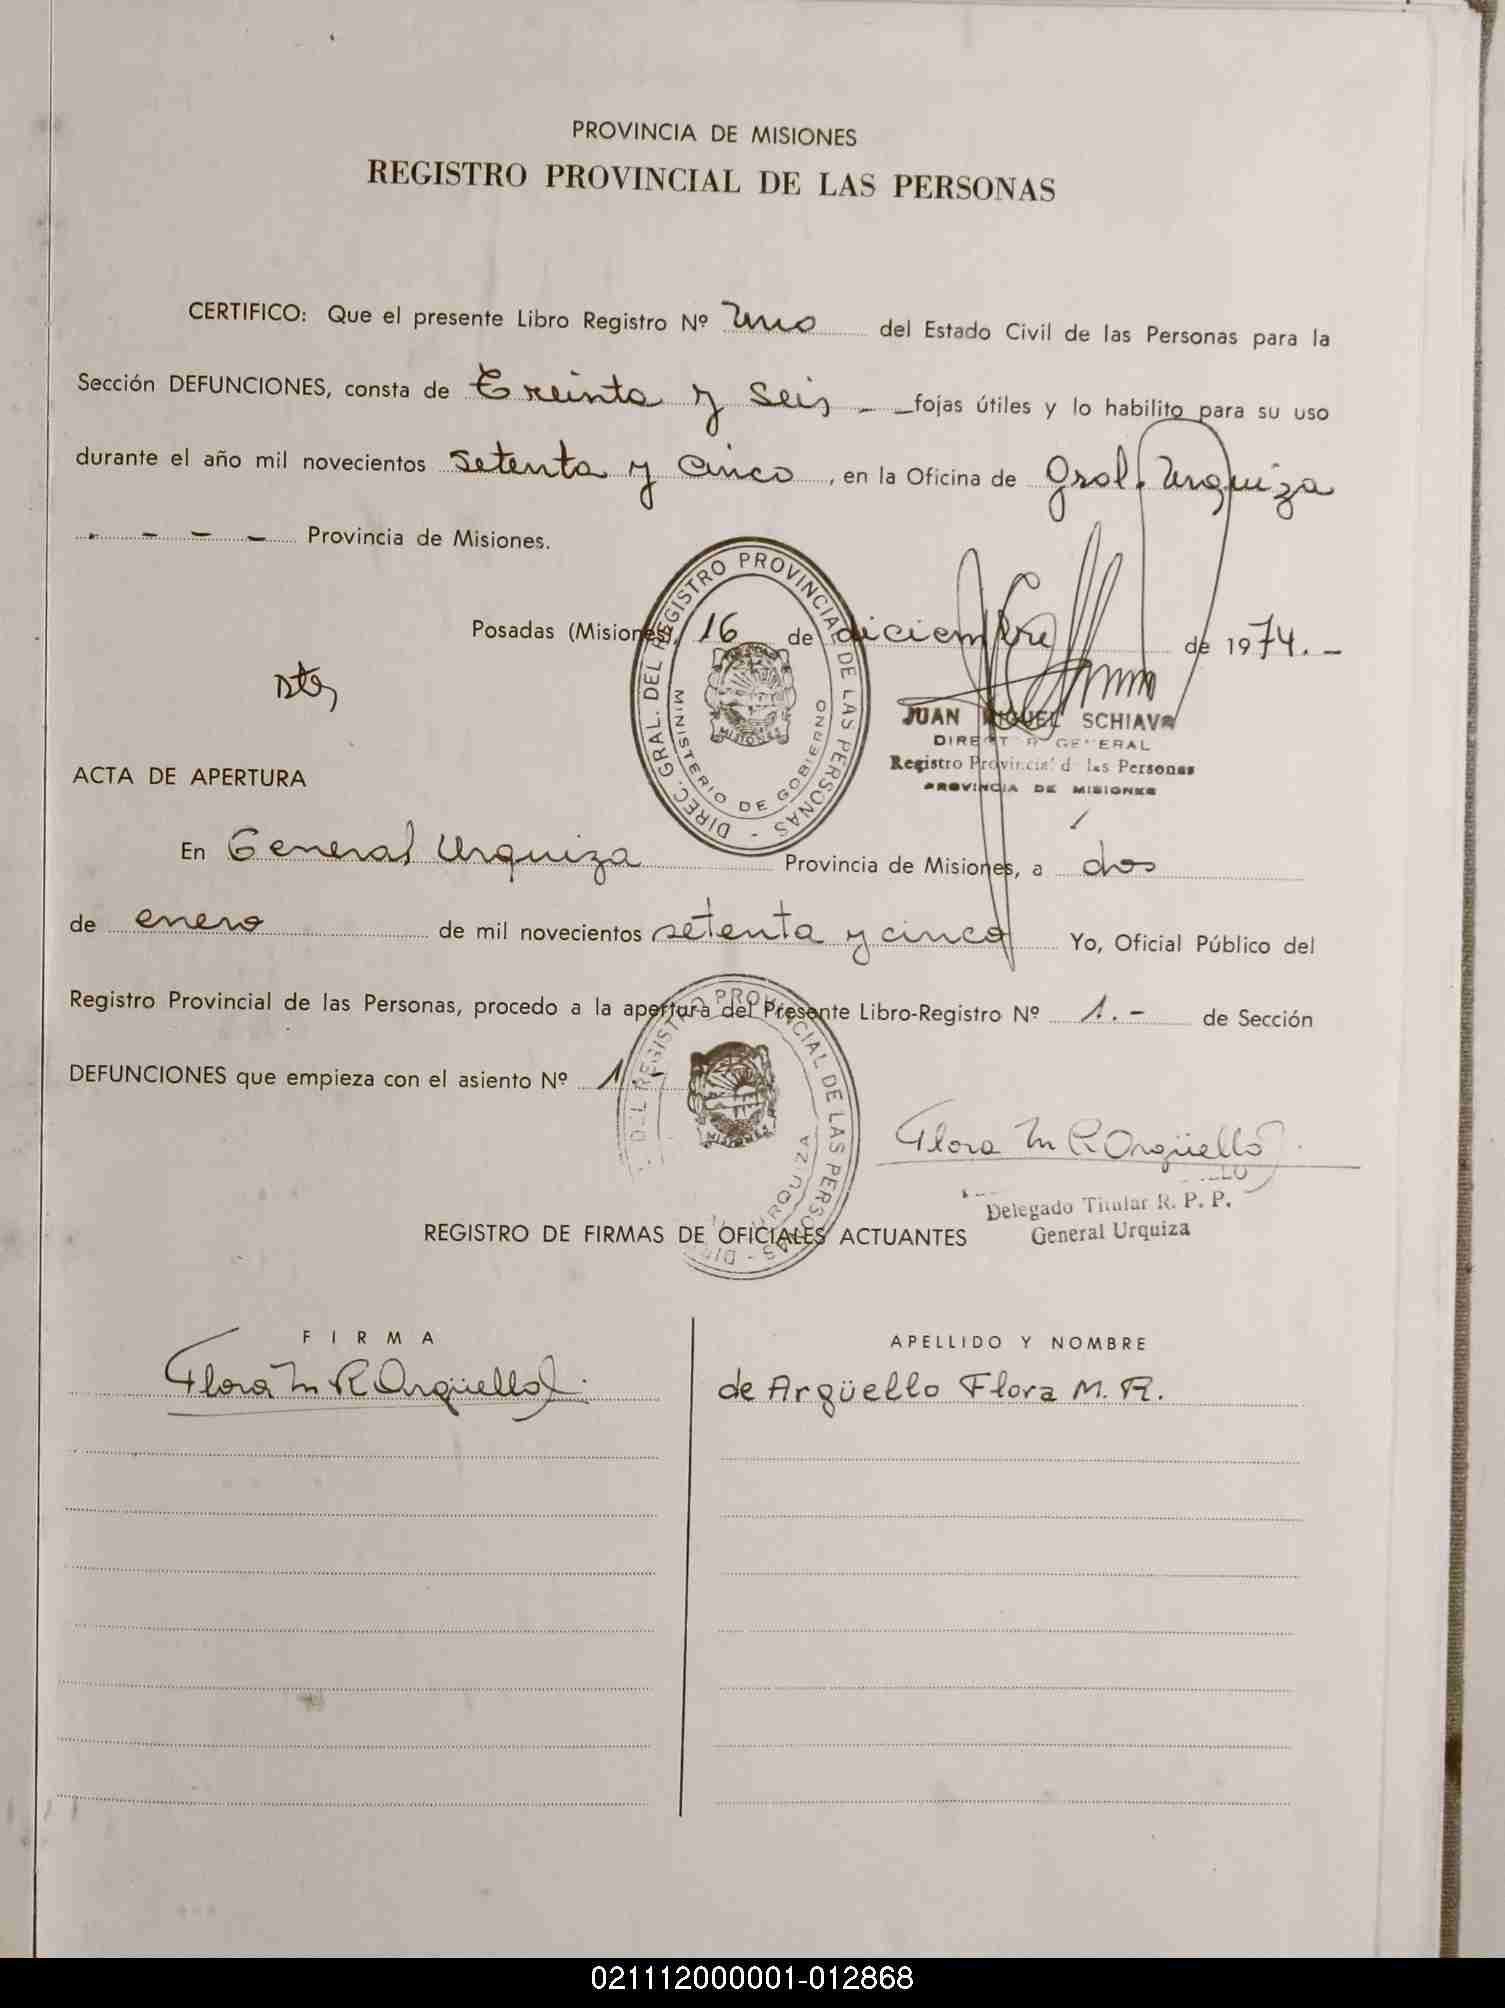 PROVINCIA DE MISIONES
REGISTRO PROVINCIAL DE LAS PERSONAS
CERTIFICO: Que el presente Libro Registro Nº Uno del Estado Civil de las Personas para la
Sección DEFUNCIONES, consta de Treinta y Seis - - fojas útiles y lo habilito para su uso
durante el año mil novecientos setenta y cinco, en la Oficina de Gral. Urquiza
- - - - Provincia de Misiones.
Posadas (Misiones), 16 de diciembre de 1974.-
DIREC. GRAL. DEL REGISTRO PROVINCIAL DE LAS PERSONAS -
MINISTERIO DE GOBIERNO
MISIONES
JUAN MIGUEL SCHIAVO
DIRECTOR GENERAL
Registro Provincial de las Personas
PROVINCIA DE MISIONES
ACTA DE APERTURA
En General Urquiza Provincia de Misiones, a dos
de enero de mil novecientos setenta y cinco Yo, Oficial Público del
Registro Provincial de las Personas, procedo a la apertura del Presente Libro-Registro Nº 1.- de Sección
DEFUNCIONES que empieza con el asiento Nº 1.-
DEL REGISTRO PROVINCIAL DE LAS PERSONAS -
URQUIZA
MISIONES
Flora M R Argüello
Delegado Titular R. P. P.
General Urquiza
REGISTRO DE FIRMAS DE OFICIALES ACTUANTES
FIRMA APELLIDO Y NOMBRE
Flora M R Argüello de Argüello Flora M. R.
021112000001-012868